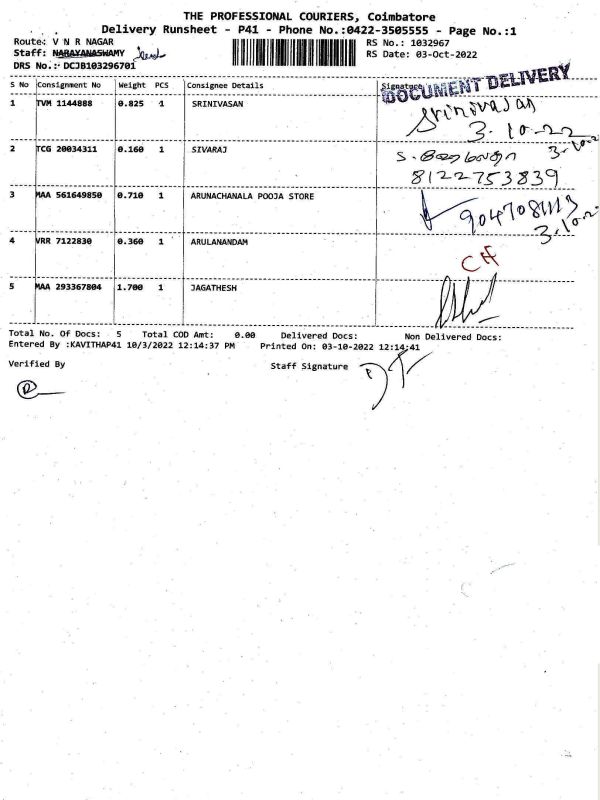 THE PROFESSIONAL COURIERS, Coimbatore
Delivery Runsheet - P41 - Phone No.:0422-3505555 - Page No.:1
Route: V N R NAGAR RS No.: 1032967
Staff: NARAYANASWAMY RS Date: 03-Oct-2022
DRS No.: DCJB103296701
S No Consignment No Weight PCS Consignee Details Signature
DOCUMENT DELIVERY
1 TVM 1144888 0.825 1 SRINIVASAN Srinivasan
3.10.22
2 TCG 20034311 0.160 1 SIVARAJ 3.10.2
8122753839
3 MAA 561649850 0.710 1 ARUNACHALA POOJA STORE
3.10.2
4 VRR 7122830 0.360 1 ARULANANDAM
5 MAA 293367804 1.700 1 JAGATHESH
Total No. Of Docs: 5 Total COD Amt: 0.00 Delivered Docs: Non Delivered Docs:
Entered By :KAVITHAP41 10/3/2022 12:14:37 PM Printed On: 03-10-2022 12:14:41
Verified By Staff Signature